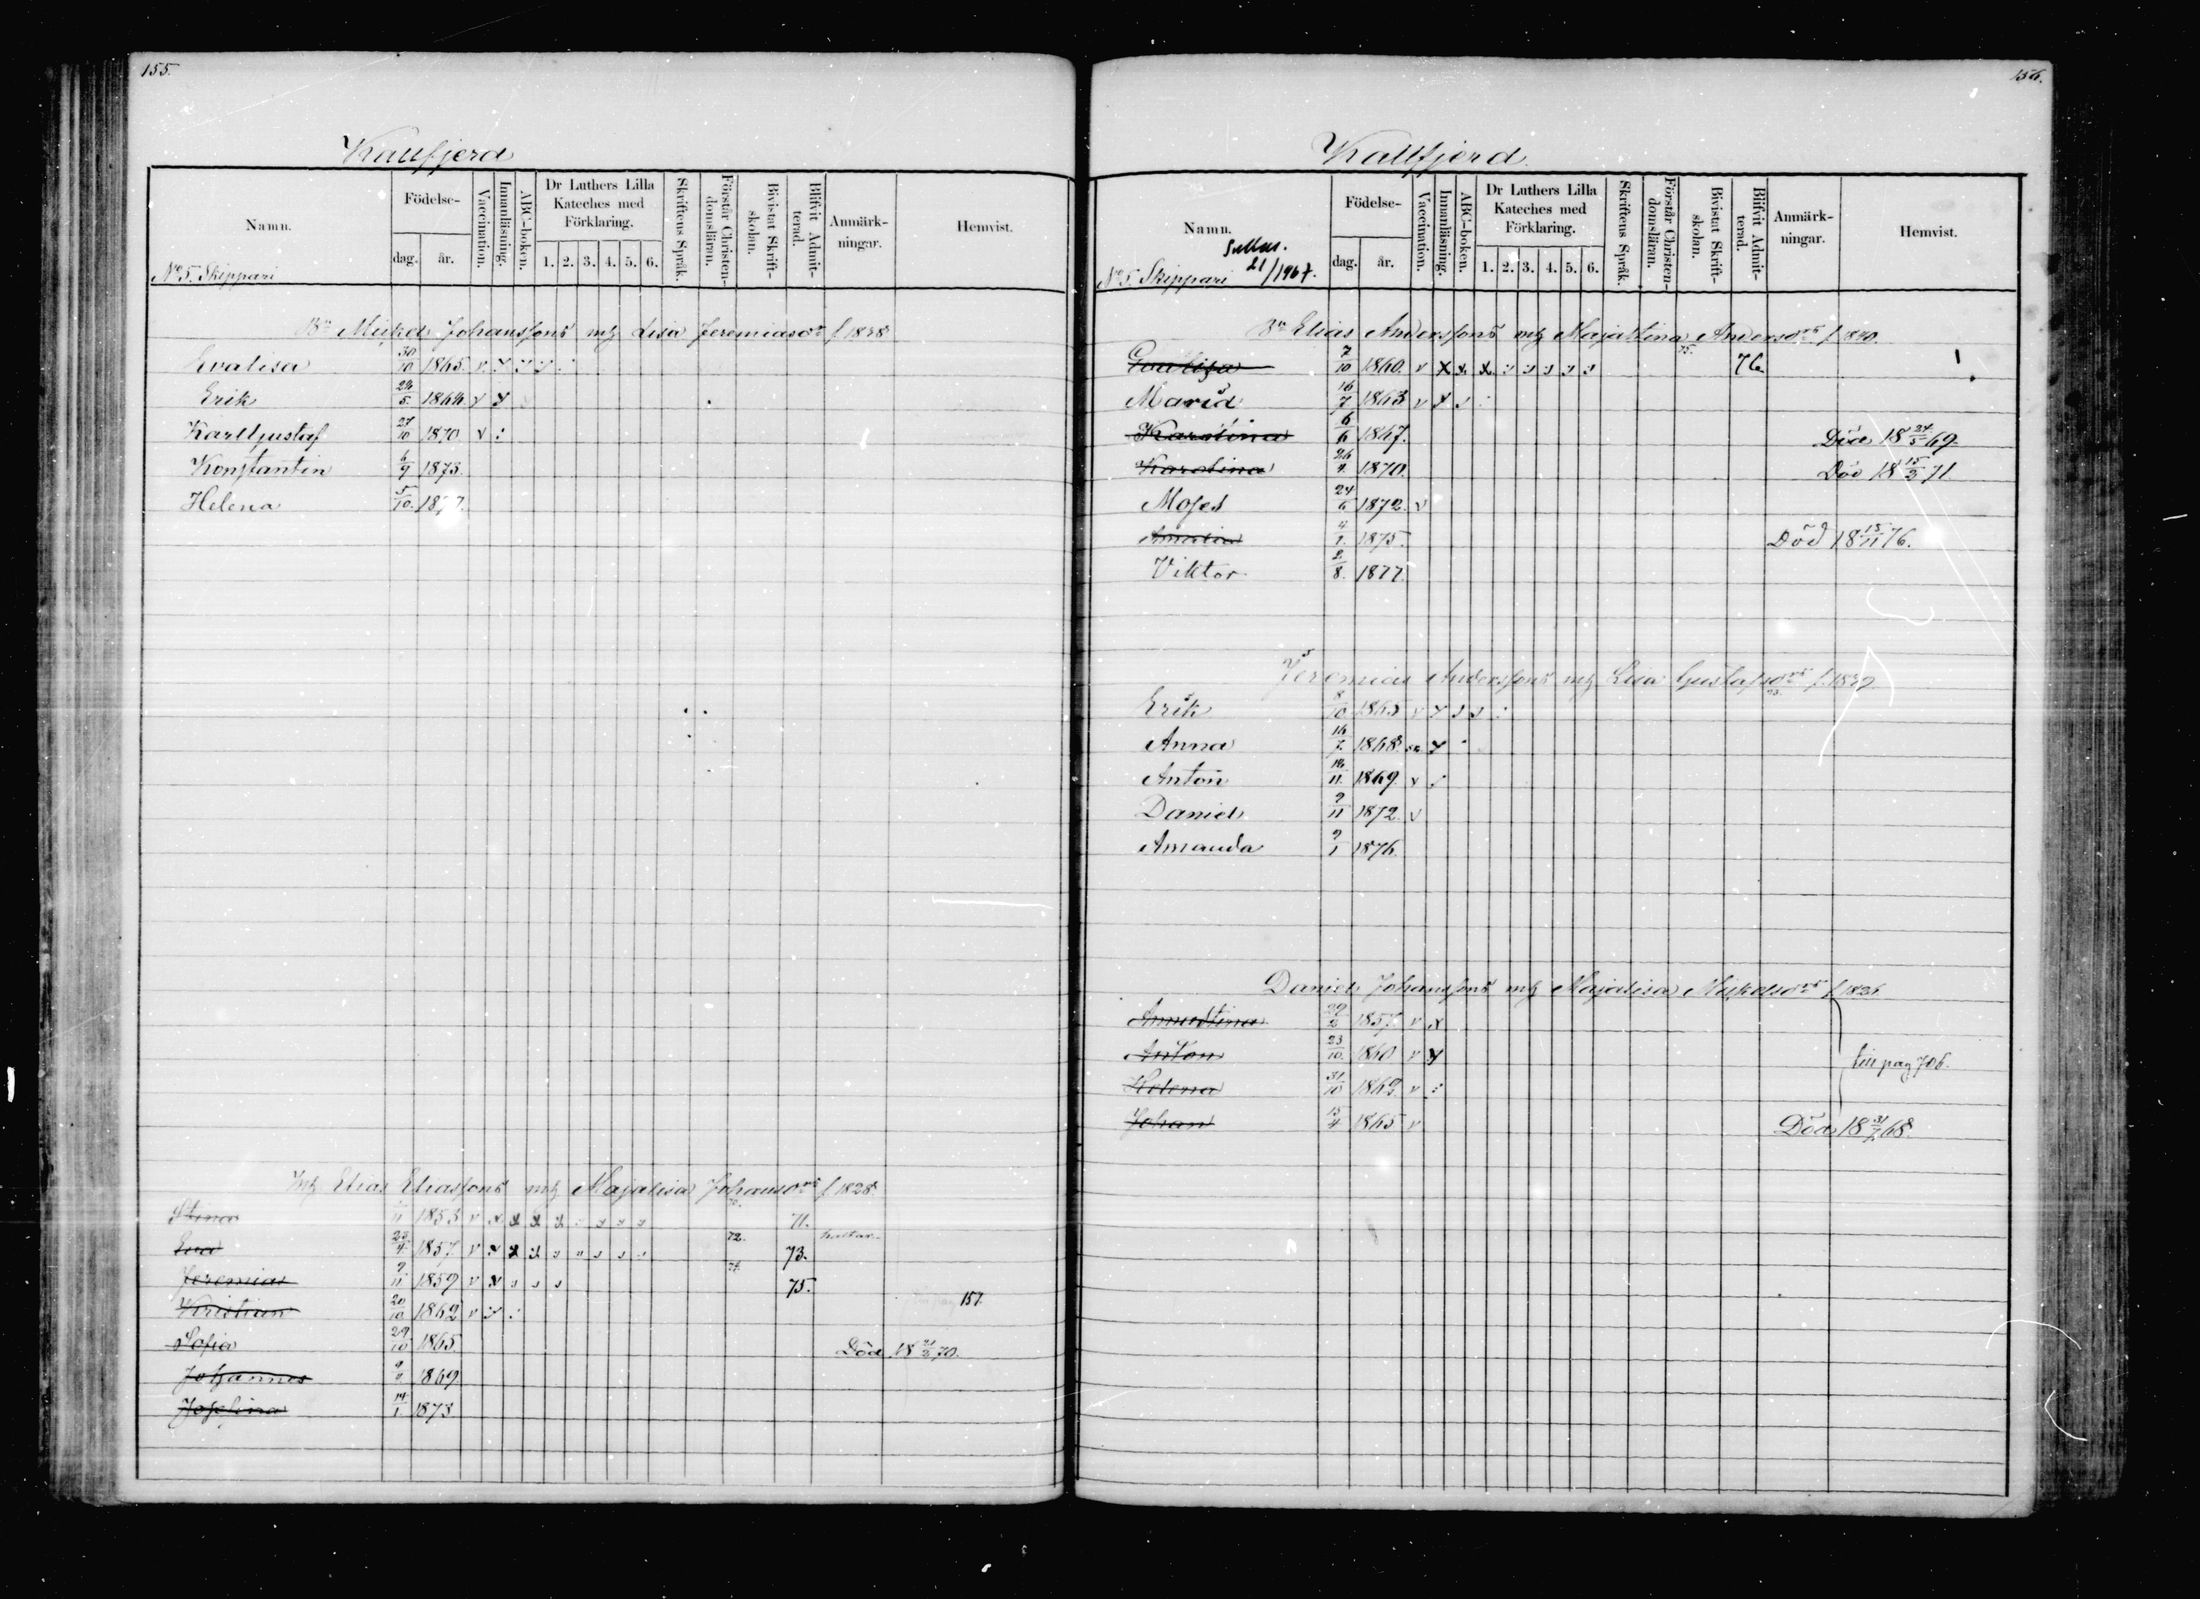 155.
Kallfjerd
Namn.
Födelse-
dag.
år.
Vaccination.
Innanläsning.
ABC-boken.
Dr Luthers Lilla Kateches med Förklaring.
1. 2. 3. 4. 5. 6.
Skriftens Språk.
Förstår Christen-domsläran.
Bivistat Skrift-skolan.
Blifvit Admit-terad.
Anmärk-ningar.
Hemvist.
No 5. Skippari
Mickel Johanssons Lisa Jeremiasdr f. 1838
Evalisa 30/10 1865. v
Erik 24/5. v
Karlgustaf 27/10 1870 v
Konstantin 6/9 1873.
Helena 5/10. 1877.
Elias Eliassons Majalisa Johansdr f. 1828
Stina 1853 v 71.
Eva 23/4. 1857. v 72. 73.
Jeremias 9/11 1859 v 75.
Kristian 20/10 1862 v 157.
Sofia 29/10 1865 Död 18 70.
Johannes 1869
Josefina 14/1. 1873
156.
Kallfjerd
Namn.
Födelse-
dag.
år.
Vaccination.
Innanläsning.
ABC-boken.
Dr Luthers Lilla Kateches med Förklaring.
1. 2. 3. 4. 5. 6.
Skriftens Språk.
Förstår Christen-domsläran.
Bivistat Skrift-skolan.
Blifvit Admit-terad.
Anmärk-ningar.
Hemvist.
21/1967.
No 5. Skippari
Elias Anderssons Majastina Andersdr f. 1840.
Evalisa 7/10 1860. v 75. 76.
Maria 16/7 1863 v
Karolina 6/6 1867. Död 18 24/5 69.
Karolina 26/4. 1870. Död 18 15/3 71.
Moses 24/6 1872. v
1875. Död 18 15/11 76.
Viktor 2/8. 1877.
Jeremias Anderssons Lisa Gustafsdr
Erik 8/10 1865 v
Anna 16/7. 1868
Anton 11. 1869. v
Daniel 9/11 1872. v
Amanda 9/1 1876.
Daniel Johanssons Majalisa Mickelsdr
Annastina 29/2 1857. v
Anton 23/10. 1860 v till pag 706.
Helena 31/10 1862 v
Johan 15/4 1865 v Död 18 31/7 68.